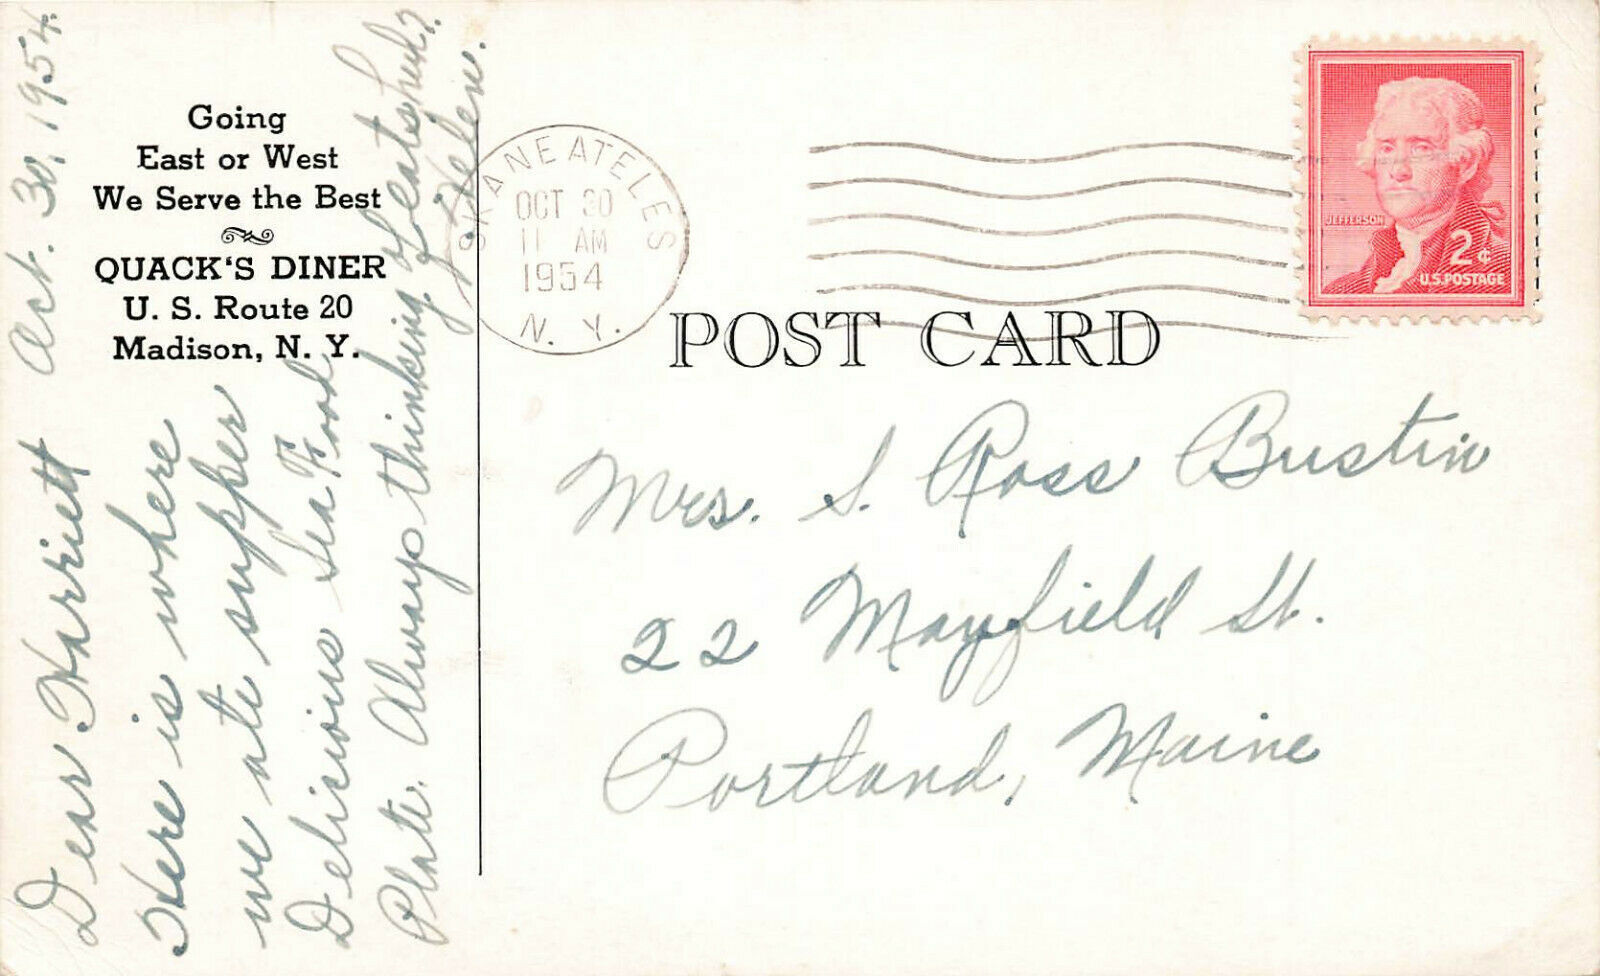 Going
East or West
We Serve the Best
QUACK'S DINER
U. S. Route 20
Madison, N. Y.
Oct. 30, 1954
Dear Harriett
Here is where
we ate supper
Delicious Sea Food
Plate. Always thinking of eats huh?
Helen.
SKANEATELES
OCT 30
11 AM
1954
N. Y.
JEFFERSON
2¢
U.S. POSTAGE
POST CARD
Mrs. S. Ross Bustin
22 Mayfield St.
Portland, Maine